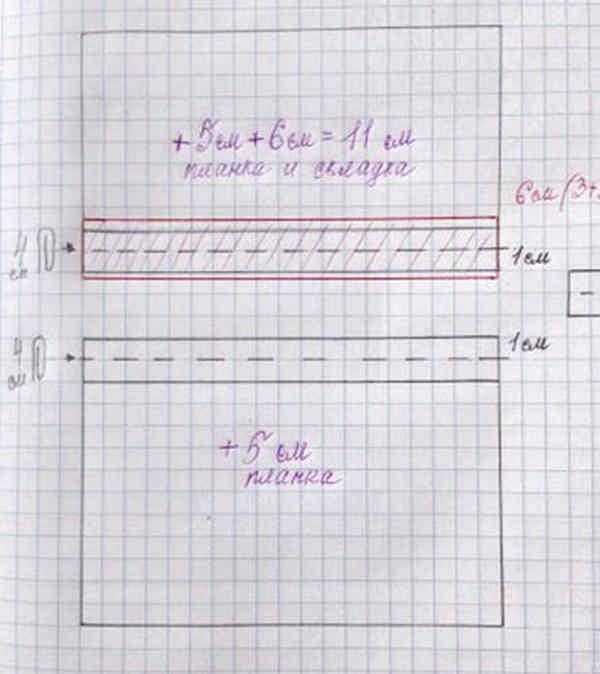 + 5см + 6см = 11 см
планка и складка
6см (3+
4
см
1см
4
см
1см
+ 5 см
планка